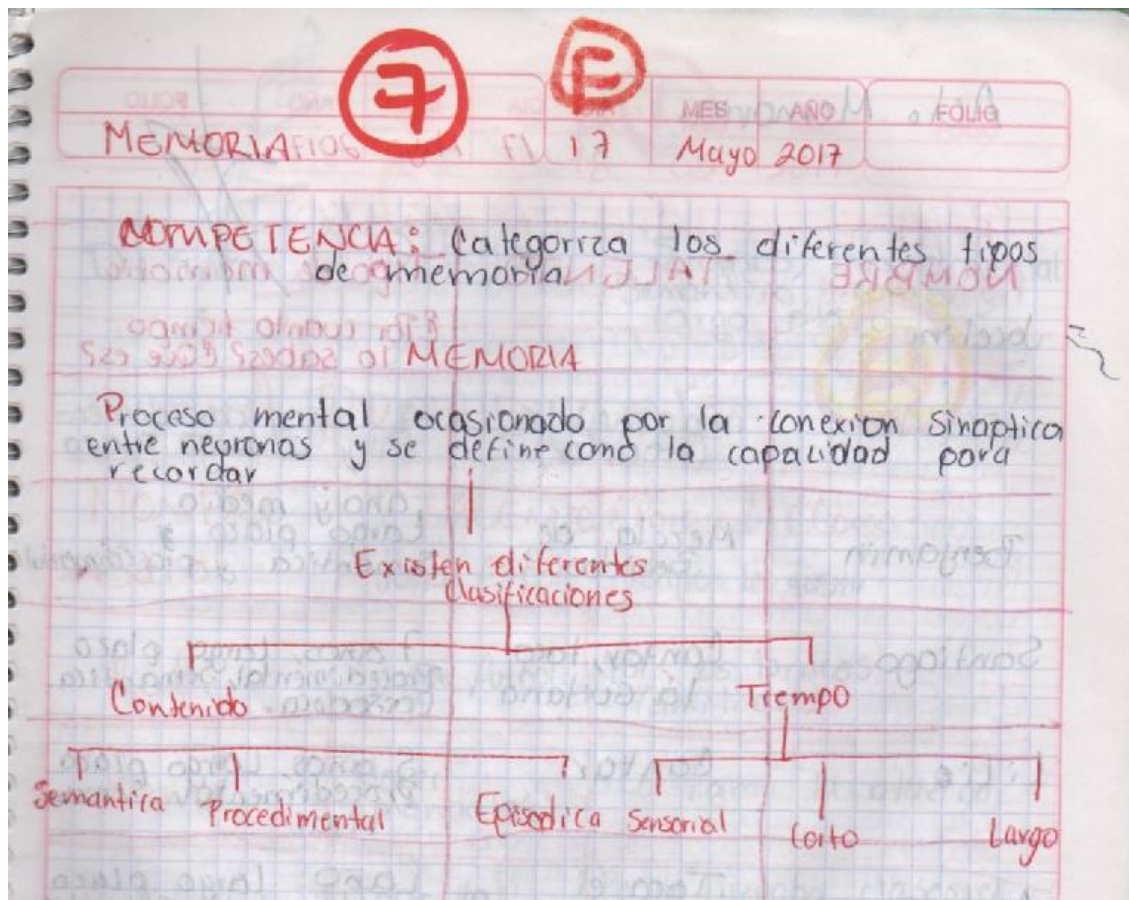 7 F
MES AÑO FOLIO
MEMORIA 17 Mayo 2017
COMPETENCIA: Categoriza los diferentes tipos
de memoria
MEMORIA
Proceso mental ocasionado por la conexion Sinaptica
entre neuronas y se define como la capacidad para
recordar
Existen diferentes
Clasificaciones
Contenido Tiempo
Semantica Procedimental Episodica Sensorial Corto Largo